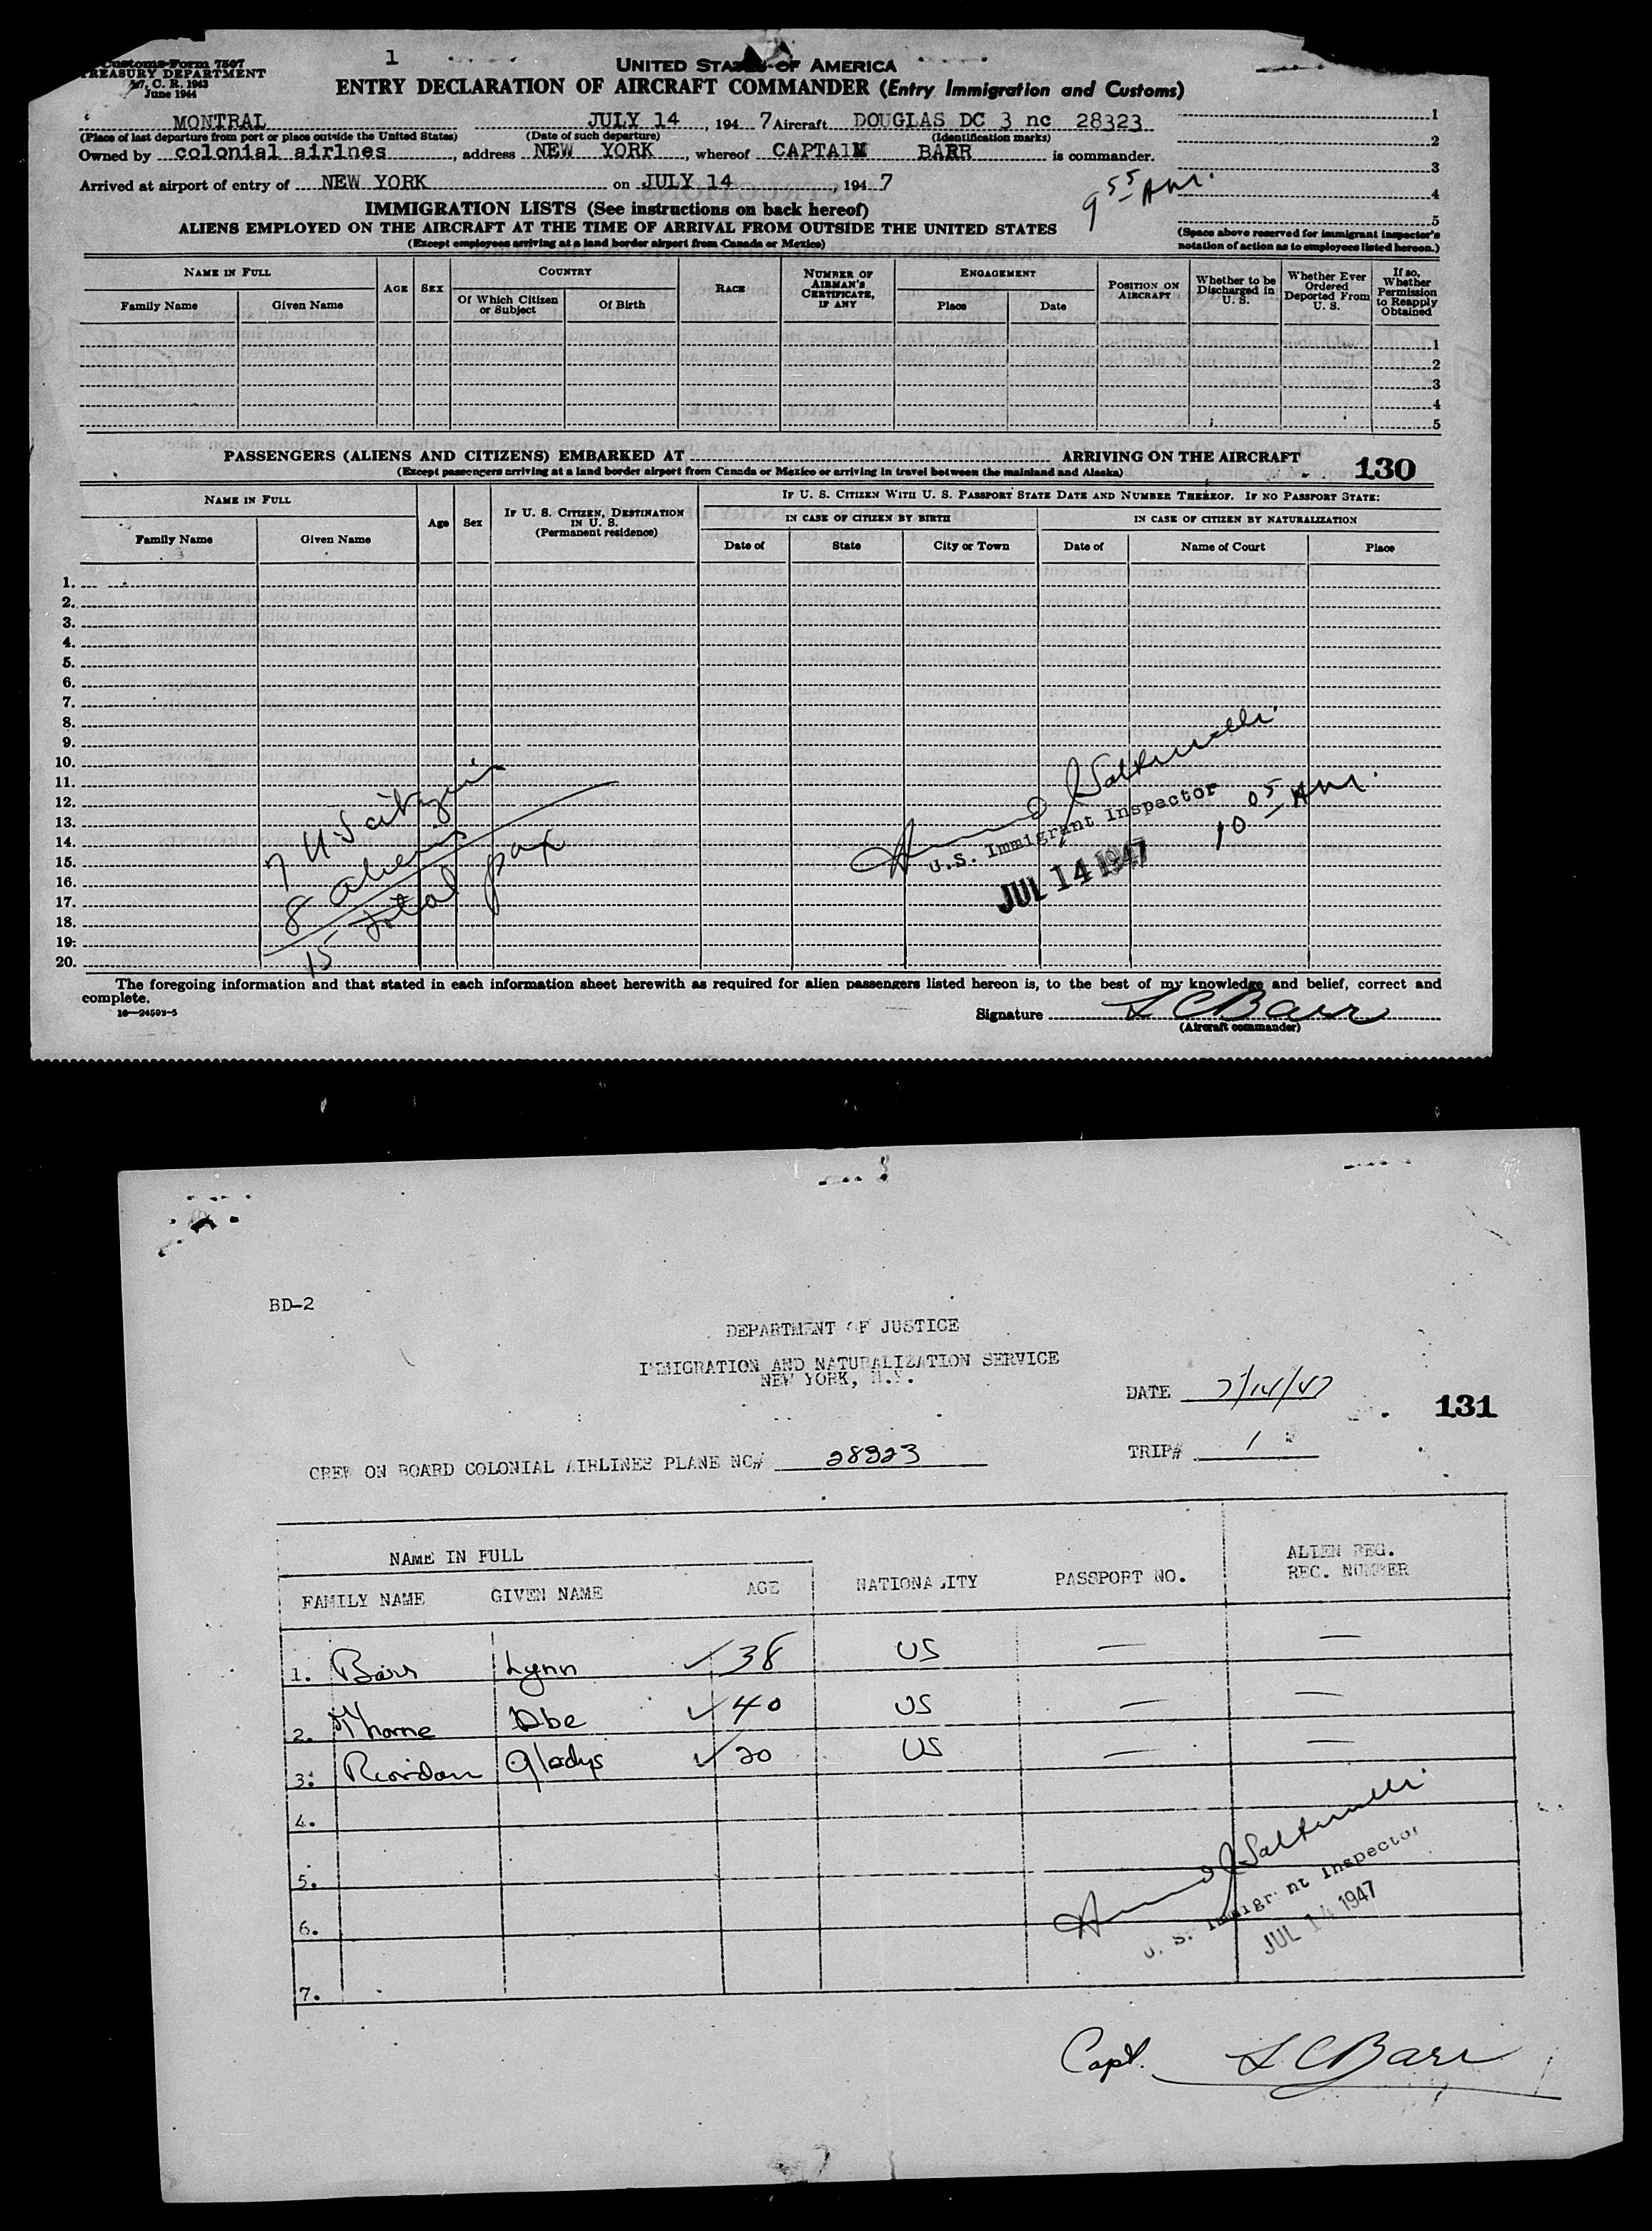 Customs Form 7507
TREASURY DEPARTMENT
C. R. 1943
June 1944
1
UNITED STATES OF AMERICA
ENTRY DECLARATION OF AIRCRAFT COMMANDER (Entry Immigration and Customs)
MONTRAL JULY 14, 1947 Aircraft DOUGLAS DC 3 nc 28323
(Place of last departure from port or place outside the United States) (Date of such departure) (Identification marks)
Owned by colonial airlnes, address NEW YORK, whereof CAPTAIN BARR is commander.
Arrived at airport of entry of NEW YORK on JULY 14, 1947
9 55 AM.
1
2
3
4
5
(Space above reserved for immigrant inspector's notation of action as to employees listed hereon.)
IMMIGRATION LISTS (See instructions on back hereof)
ALIENS EMPLOYED ON THE AIRCRAFT AT THE TIME OF ARRIVAL FROM OUTSIDE THE UNITED STATES
(Except employees arriving at a land border airport from Canada or Mexico)
NAME IN FULL
Family Name Given Name
AGE SEX
COUNTRY
Of Which Citizen or Subject Of Birth
RACE
NUMBER OF AIRMAN'S CERTIFICATE, IF ANY
ENGAGEMENT
Place Date
POSITION ON AIRCRAFT
Whether to be Discharged in U. S.
Whether Ever Ordered Deported From U. S.
If so, Whether Permission to Reapply Obtained
1
2
3
4
5
PASSENGERS (ALIENS AND CITIZENS) EMBARKED AT ARRIVING ON THE AIRCRAFT
(Except passengers arriving at a land border airport from Canada or Mexico or arriving in travel between the mainland and Alaska)
130
NAME IN FULL
Family Name Given Name
Age Sex
IF U. S. CITIZEN, DESTINATION IN U. S. (Permanent residence)
IF U. S. CITIZEN WITH U. S. PASSPORT STATE DATE AND NUMBER THEREOF. IF NO PASSPORT STATE:
IN CASE OF CITIZEN BY BIRTH IN CASE OF CITIZEN BY NATURALIZATION
Date of State City or Town Date of Name of Court Place
1.
2.
3.
4.
5.
6.
7.
8.
9.
10.
11.
12.
13.
14.
15.
16.
17.
18.
19.
20.
7 US citizens
8 aliens
15 total pax
U.S. Immigrant Inspector
JUL 14 1947
10 05 AM.
The foregoing information and that stated in each information sheet herewith as required for alien passengers listed hereon is, to the best of my knowledge and belief, correct and
complete.
16—24503-5
Signature L C Barr
(Aircraft commander)
BD-2
DEPARTMENT OF JUSTICE
IMMIGRATION AND NATURALIZATION SERVICE
NEW YORK, N.Y.
DATE 7/14/47
131
CREW ON BOARD COLONIAL AIRLINES PLANE NC# 28323
TRIP# 1
NAME IN FULL
FAMILY NAME GIVEN NAME AGE NATIONALITY PASSPORT NO. ALIEN REG. REC. NUMBER
1. Barr Lynn ✓ 38 US — —
2. Thorne Abe ✓ 40 US — —
3. Riordan Gladys ✓ 20 US — —
4.
5.
6.
7.
U. S. Immigrant Inspector
JUL 14 1947
Capt. L C Barr